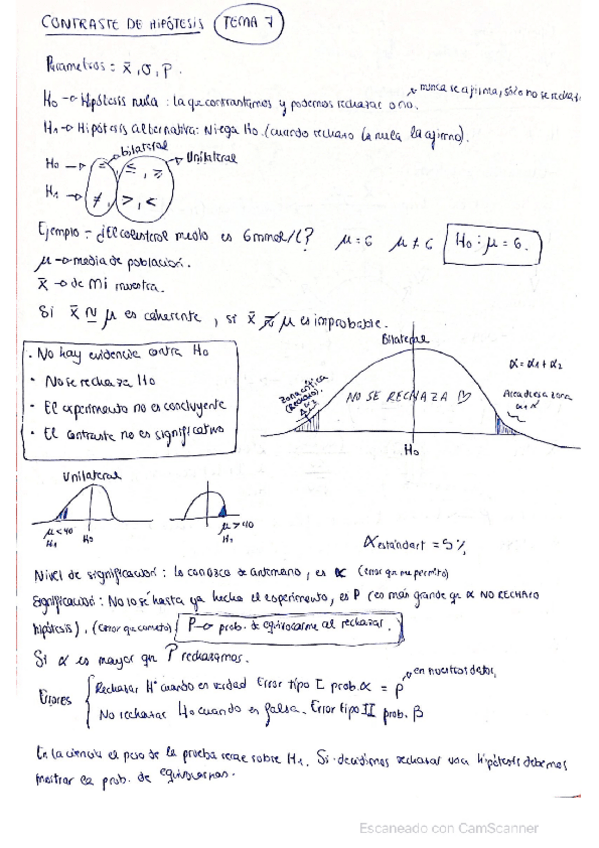 CONTRASTE DE HIPÓTESIS TEMA 7
Parametros: x̄, σ, p.
nunca se afirma, sólo no se rechaza
H₀ → Hipótesis nula: la que contrastamos y podemos rechazar o no.
H₁ → Hipótesis alternativa: Niega H₀. (cuando rechazo la nula la afirmo).
bilateral
Unilateral
H₀ → =, ≤, ≥
H₁ → ≠, >, <
Ejemplo - ¿El colesterol medio es 6mmol/l? μ=6 μ≠6 H₀: μ=6.
μ → media de población.
x̄ → de mi muestra.
Si x̄ ≈ μ es coherente, si x̄ ≉ μ es improbable.
· No hay evidencia contra H₀
· No se rechaza H₀
· El experimento no es concluyente
· El contraste no es significativo
Bilateral
α = α₁ + α₂
Zona crítica
(Rechazo)
NO SE RECHAZA
Area de esa zona
H₀
Unilateral
μ<40
H₁
H₀
μ>40
H₁
α estándart = 5%
Nivel de significación: lo conozco de antemano, es α (error que me permito)
Significación: No lo sé hasta ya hecho el experimento, es P (es más grande que α NO RECHAZO
hipótesis), (error que cometo) P → prob. de equivocarme al rechazar.
Si α es mayor que P rechazamos.
en nuestros datos
Errores
Rechazar H° cuando es verdad Error tipo I prob. α = p
No rechazar H₀ cuando es falsa. Error tipo II prob. β
En la ciencia el peso de la prueba recae sobre H₁. Si decidimos rechazar una hipótesis debemos
mostrar la prob. de equivocarnos.
Escaneado con CamScanner